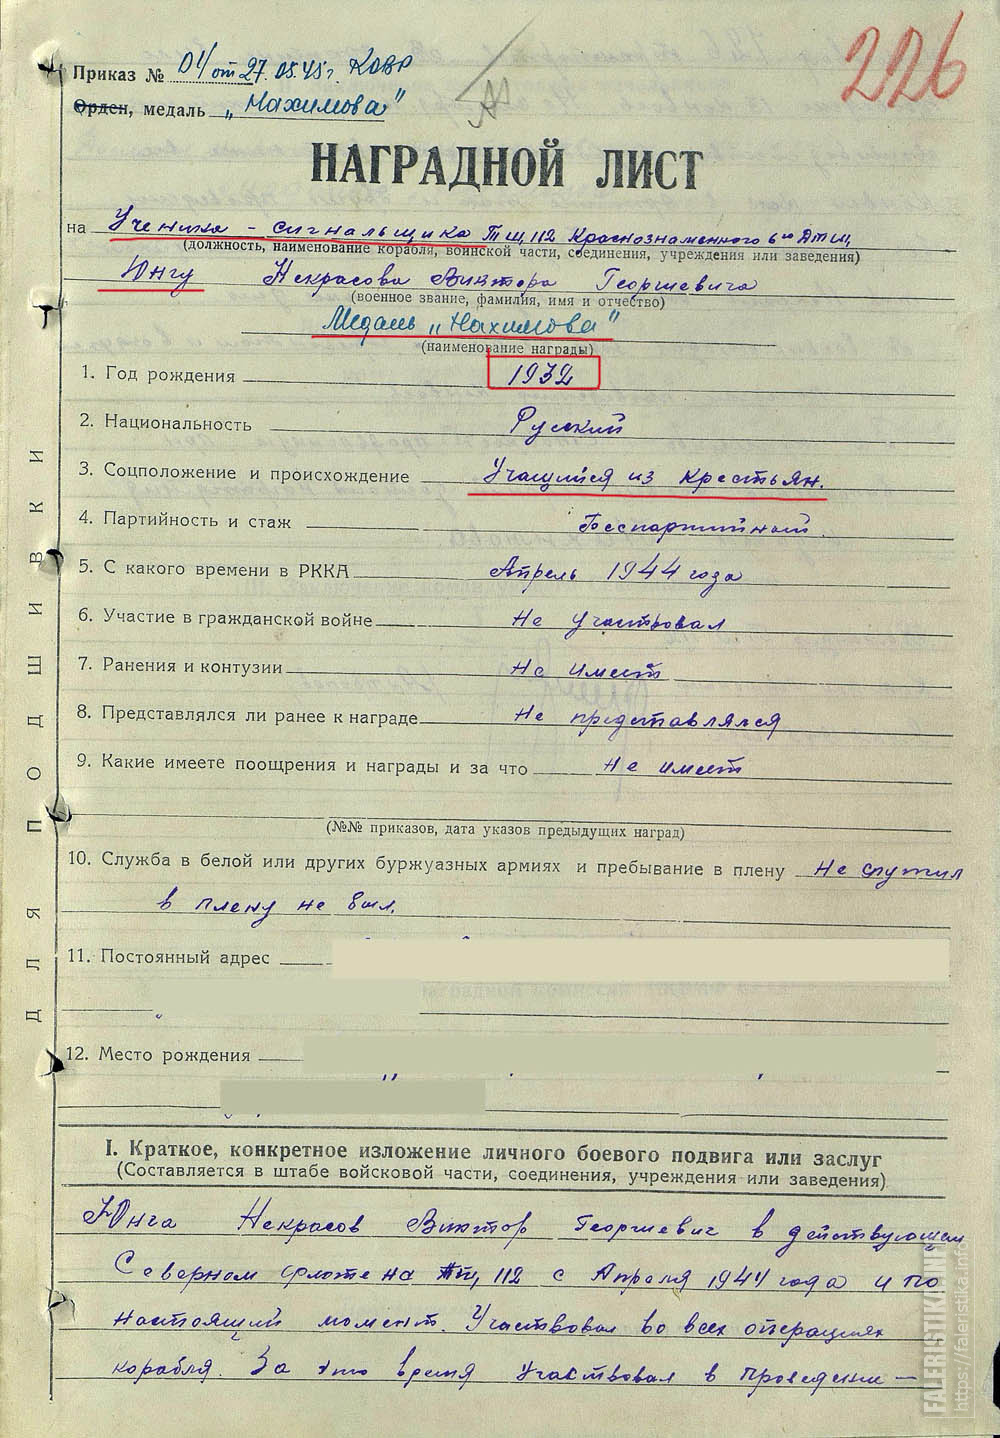 226
Приказ № 04 от 27.05.45г. КОВР
Орден, медаль „Нахимова"
НАГРАДНОЙ ЛИСТ
на Ученика - сигнальщика ТЩ 112 Краснознаменного 6го Дтщ
(должность, наименование корабля, воинской части, соединения, учреждения или заведения)
Юнгу Некрасова Виктора Георгиевича
(военное звание, фамилия, имя и отчество)
Медаль „Нахимова"
(наименование награды)
1. Год рождения 1932
2. Национальность Русский
3. Соцположение и происхождение Учащийся из крестьян.
4. Партийность и стаж Беспартийный.
5. С какого времени в РККА Апрель 1944 года
6. Участие в гражданской войне Не участвовал
7. Ранения и контузии Не имеет
8. Представлялся ли ранее к награде Не представлялся
9. Какие имеете поощрения и награды и за что Не имеет
(№№ приказов, дата указов предыдущих наград)
10. Служба в белой или других буржуазных армиях и пребывание в плену Не служил
в плену не был.
11. Постоянный адрес
12. Место рождения
I. Краткое, конкретное изложение личного боевого подвига или заслуг
(Составляется в штабе войсковой части, соединения, учреждения или заведения)
Юнга Некрасов Виктор Георгиевич в действующем
Северном флоте на ТЩ 112 с Апреля 1944 года и по
настоящий момент. Участвовал во всех операциях
корабля. За это время участвовал в проведении-
ДЛЯ ПОДШИВКИ
FALERISTIKA.INFO
https://faleristika.info